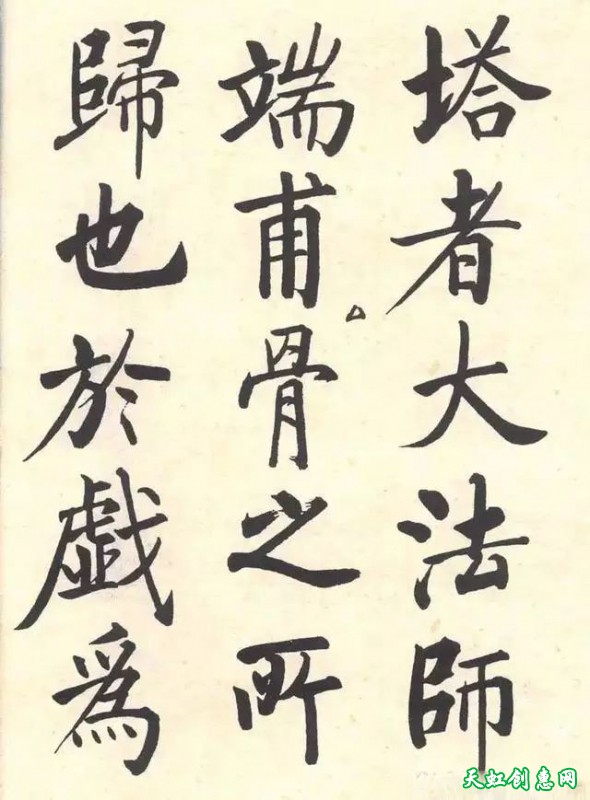 塔者大法師
端甫骨之所
歸也於戯為
天虹创惠网